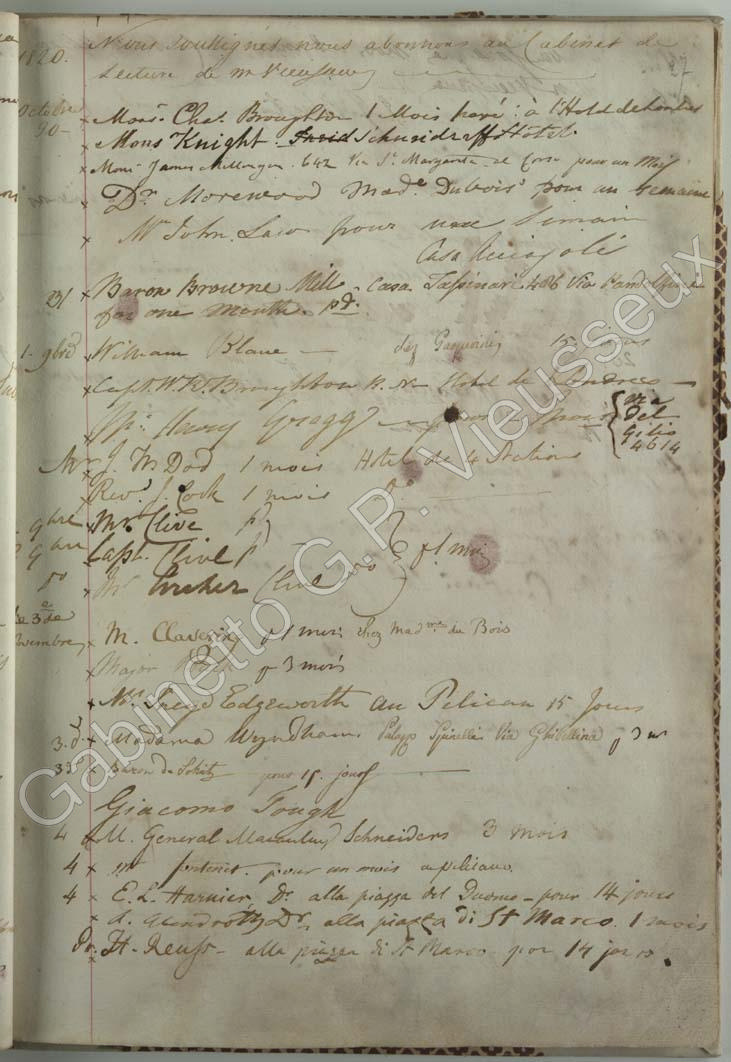 1820. Nous soussignés nous abonnons au Cabinet de
Lecture de mr Vieusseux
27
Octobre
30 - x Mons. Chas. Broughton 1 Mois payé: à l'Hotel de Londres
x Mons Knight. Schneidraff Hotel
x Monsr James Millingen. 642 Via St. Margarita al Corso pour un Mois
x Dr. Morewood Made. Dubois' pour un Semaine
x Mr John Law pour une Simain
Casa
31 x Baron Browne Mill - Casa 486 Via
for one Month. pd.
1- 9bre William Blane - 15 jours
x Capt. W. R. Broughton R. N. Hotel de Londres -
x Mr. Henry Gragg 1 mois { via del Giglio 4614
Mr J. M Dod 1 mois Hotel de 4 Nations
x Revd. J. Cock 1 mois Do
9bre Mr. Clive pd
9bre Capt. Clive pd
Do Clive } p 1 mois
le 3e de
Novembre x M. Clavering p 1 mois chez Madme du Bois
x Major p 3 mois
x Mr. Sneyd Edgeworth au Pelican 15 Jours
3. d. x Madama Wyndham. Palazzo Spinelli Via Ghibellina p 3 m
3 do x Baron de pour 15. jours
Giacomo Tough
4 x M. General Macaulay Schneiders 3 mois
4 x mr pour un mois a pelicano.
4 x E. L. Harnier, Dr. alla piazza del Duomo - pour 14 jours
x A. Dr. alla piazza di St Marco. 1 mois
Do. x H. Reuss - alla piazza di St Marco - por 14 jours.
Gabinetto G.P. Vieusseux